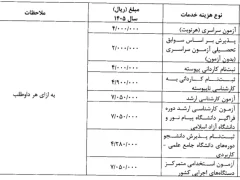 نوع هزینه خدمات
مبلغ (ریال)
سال ۱۴۰۵
ملاحظات
آزمون سراسری (هرنوبت)
۴/۰۰۰/۰۰۰
پذیرش بر اساس سوابق
تحصیلی آزمون سراسری
(بدون آزمون)
۲/۰۰۰/۰۰۰
ثبت‌نام کاردانی پیوسته
۴/۰۰۰/۰۰۰
ثبت‌نام کاردانی به
کارشناسی ناپیوسته
۴/۹۰۰/۰۰۰
آزمون کارشناسی ارشد
۷/۰۵۰/۰۰۰
آزمون کارشناسی ارشد دوره
فراگیر دانشگاه پیام نور و
دانشگاه آزاد اسلامی
۷/۰۵۰/۰۰۰
ثبت‌نام پذیرش دانشجو
دوره‌های دانشگاه جامع علمی -
کاربردی
۴/۲۸۰/۰۰۰
آزمون استخدامی متمرکز
دستگاه‌های اجرایی کشور
۷/۰۵۰/۰۰۰
به ازای هر داوطلب